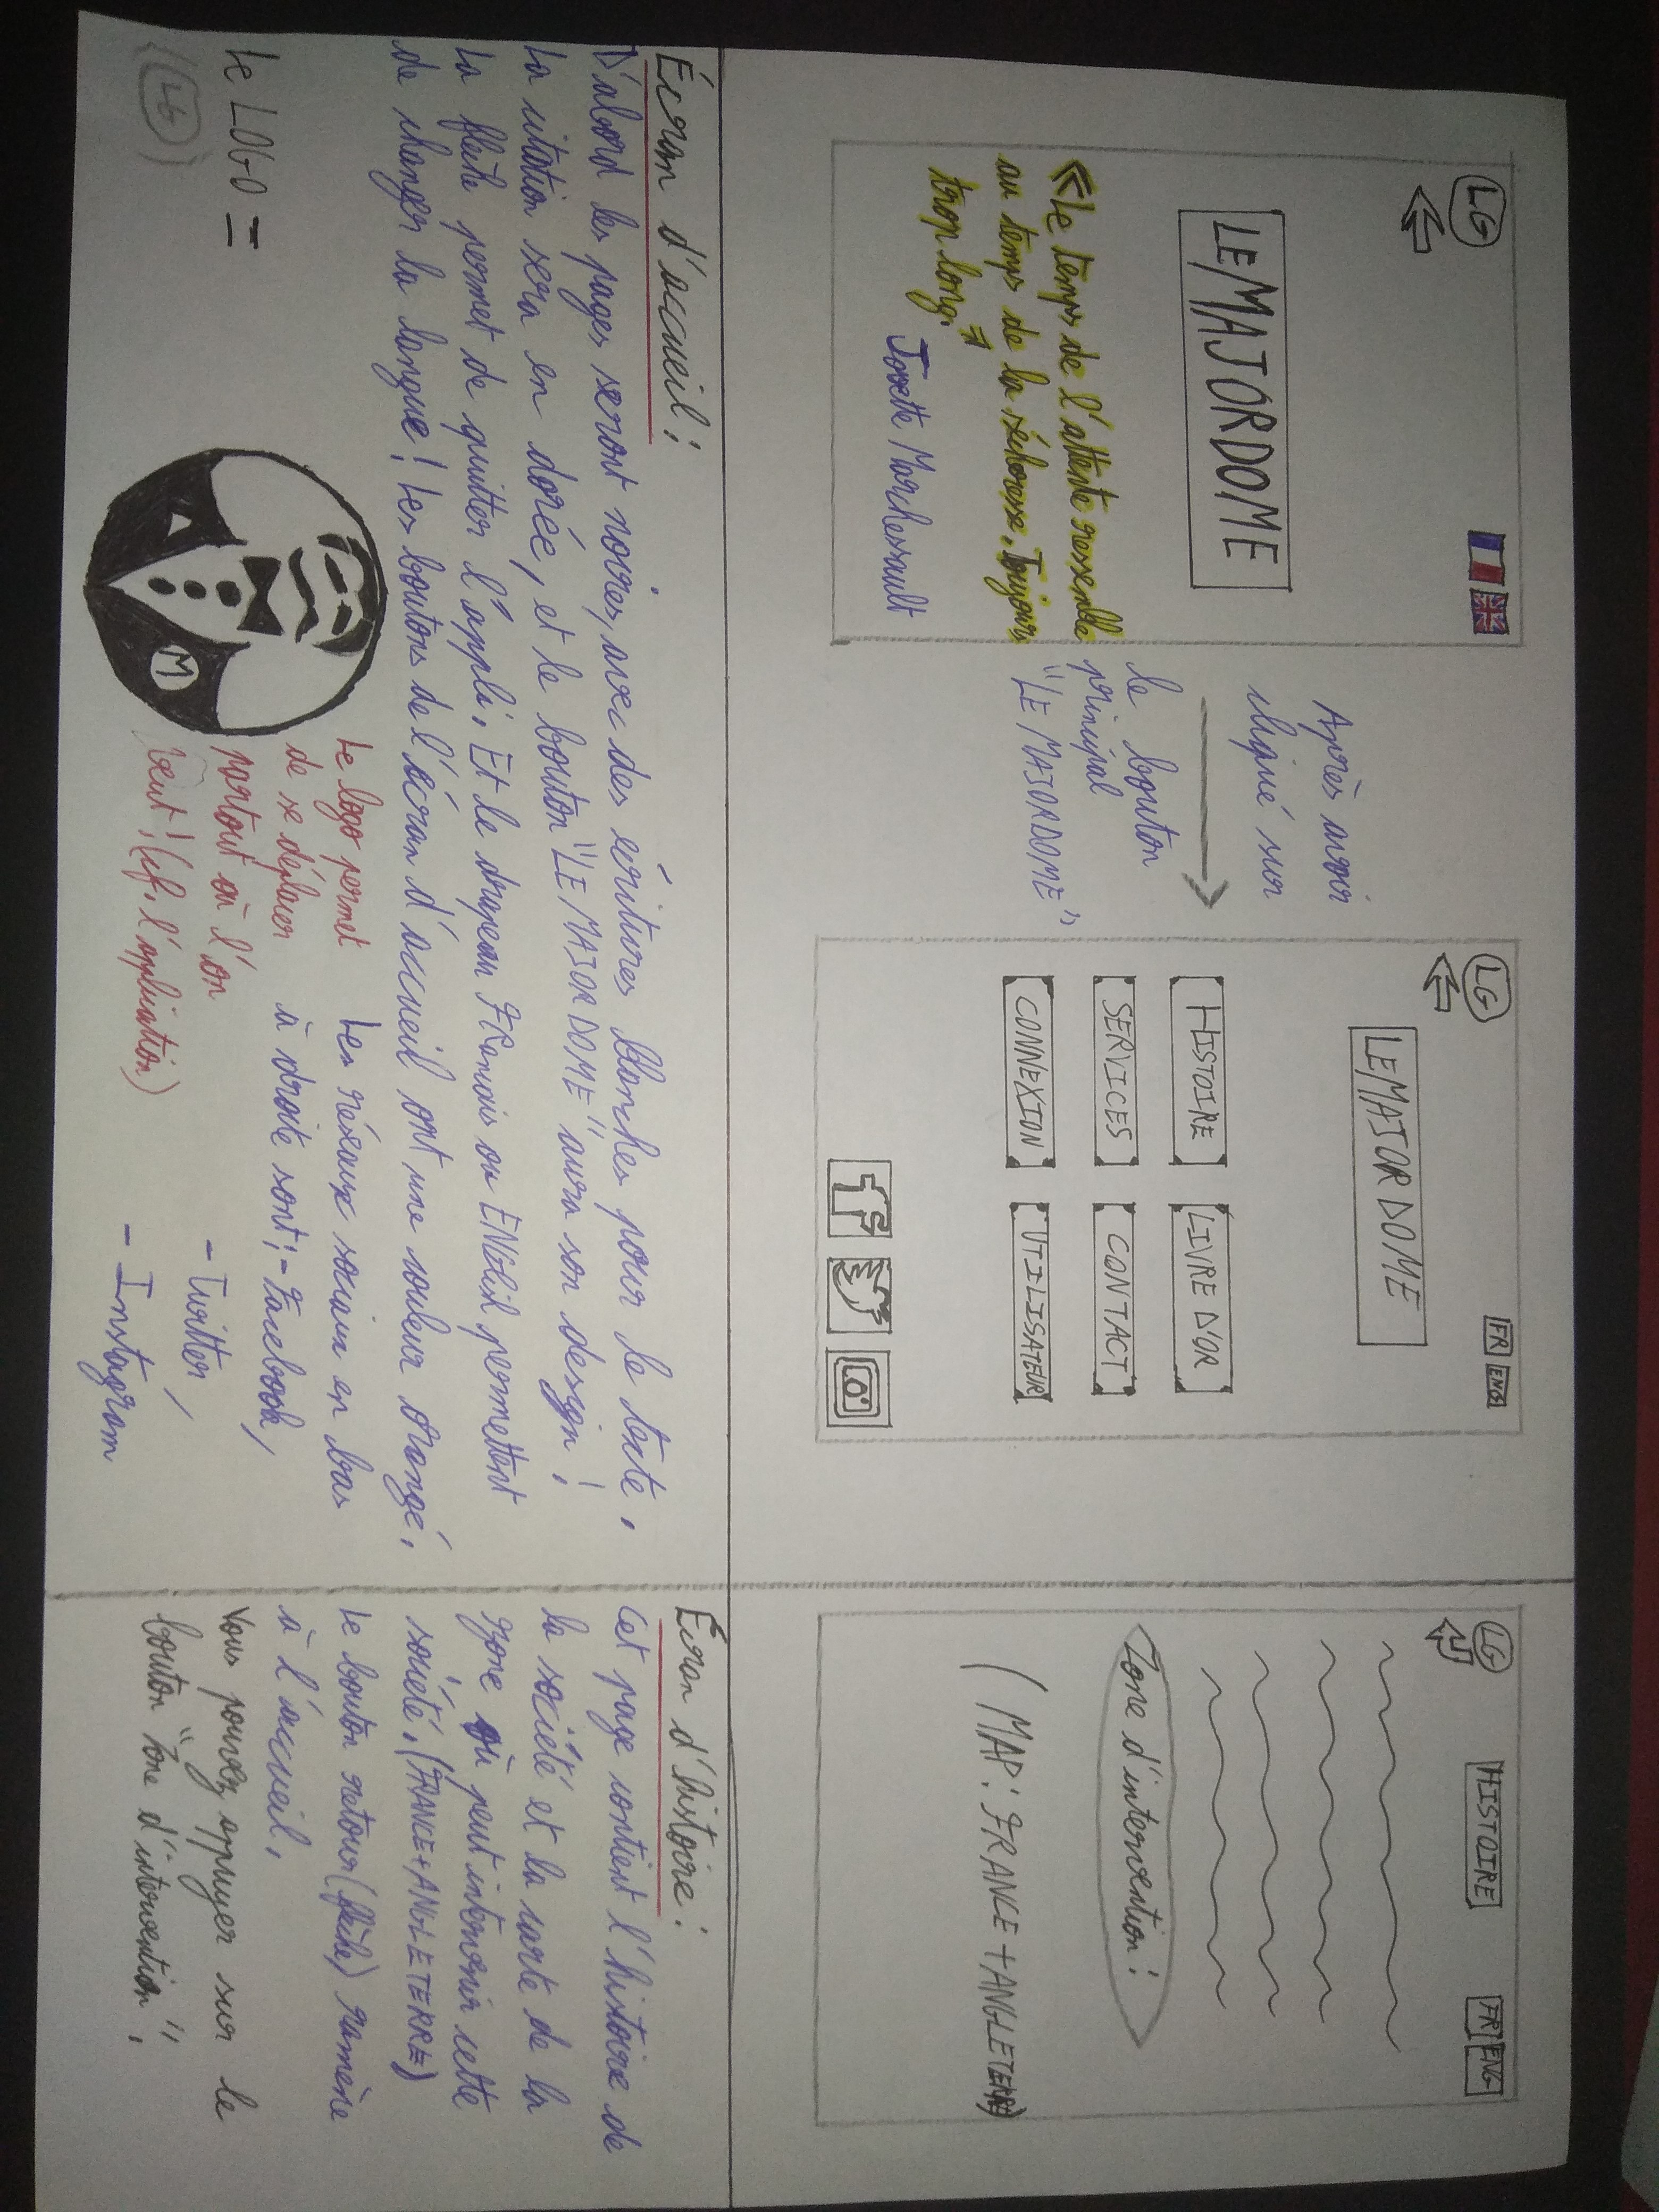 LG
LE MAJORDOME
«Le temps de l'attente ressemble
au temps de la sécheresse. Toujours
trop long.»
Jovette Marchessault
Après avoir
cliqué sur
le bouton
principal
"LE MAJORDOME"
LG
FR ENG
LE MAJORDOME
HISTOIRE LIVRE D'OR
SERVICES CONTACT
CONNEXION UTILISATEUR
f
LG HISTOIRE FR ENG
Zone d'intervention :
(MAP : FRANCE + ANGLETERRE)
Écran d'accueil :
D'abord les pages seront noires, avec des écritures blanches pour le texte.
La citation sera en dorée, et le bouton "LE MAJORDOME" aura son design !
La flèche permet de quitter l'appli. Et le drapeau FRançais ou ENGlish permettent
de changer la langue ! Les boutons de l'écran d'accueil ont une couleur orangé.
Le LOGO =
(LG)
M
Le logo permet
de se déplacer
partout où l'on
veut ! (cf. l'application)
Les réseaux sociaux en bas
à droite sont : - Facebook,
- Twitter,
- Instagram
Écran d'histoire :
Cet page contient l'histoire de
la société et la carte de la
zone où peut intervenir cette
société. (FRANCE + ANGLETERRE)
Le bouton retour (flèche) ramène
à l'accueil.
Vous pouvez appuyer sur le
bouton "Zone d'intervention".